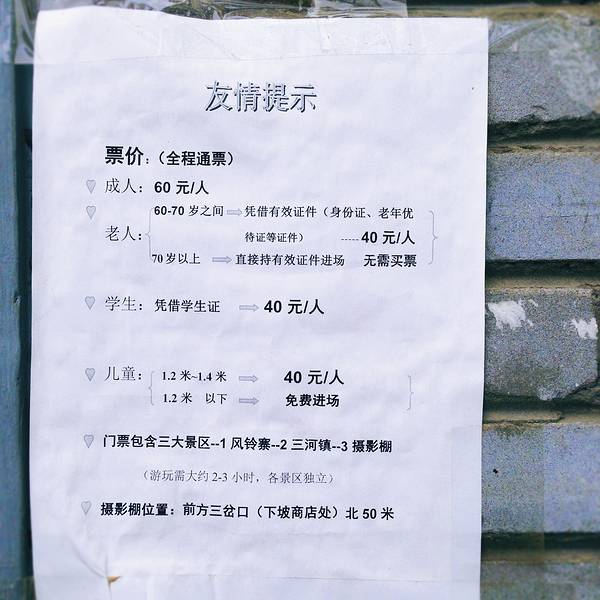 友情提示
票价:（全程通票）
成人: 60 元/人
60-70 岁之间 凭借有效证件（身份证、老年优
老人: 待证等证件） -----40 元/人
70 岁以上 直接持有效证件进场 无需买票
学生: 凭借学生证 40 元/人
儿童: 1.2 米~1.4 米 40 元/人
1.2 米 以下 免费进场
门票包含三大景区--1 风铃寨--2 三河镇--3 摄影棚
（游玩需大约 2-3 小时，各景区独立）
摄影棚位置：前方三岔口（下坡商店处）北 50 米